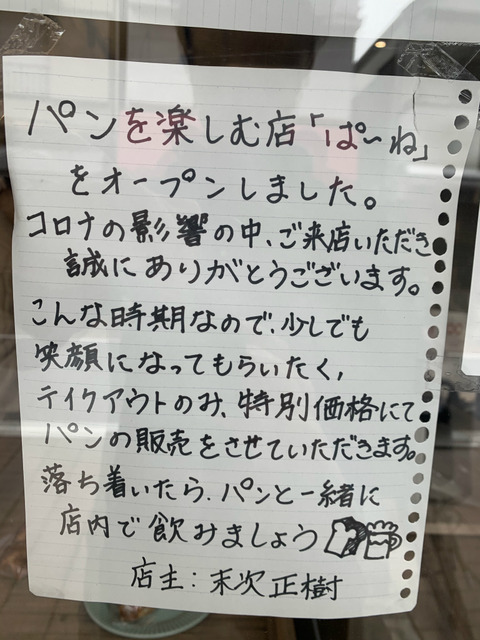 パンを楽しむ店「ぱ〜ね」
をオープンしました。
コロナの影響の中、ご来店いただき
誠にありがとうございます。
こんな時期なので、少しでも
笑顔になってもらいたく、
テイクアウトのみ、特別価格にて
パンの販売をさせていただきます。
落ち着いたら、パンと一緒に
店内で飲みましょう
店主：末次正樹